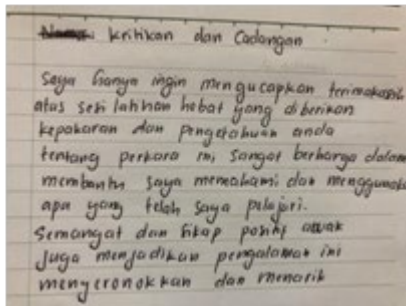 kritikan dan Cadangan
Saya hanya ingin mengucapkan terimakasih
atas sesi latihan hebat yang diberikan
kepakaran dan pengetahuan anda
tentang perkara ini, sangat berharga dalam
membantu saya memahami dan menggunak
apa yang telah saya pelajari.
Semangat dan sikap positif awak
juga menjadikan pengalaman ini
menyeronokkan dan menarik